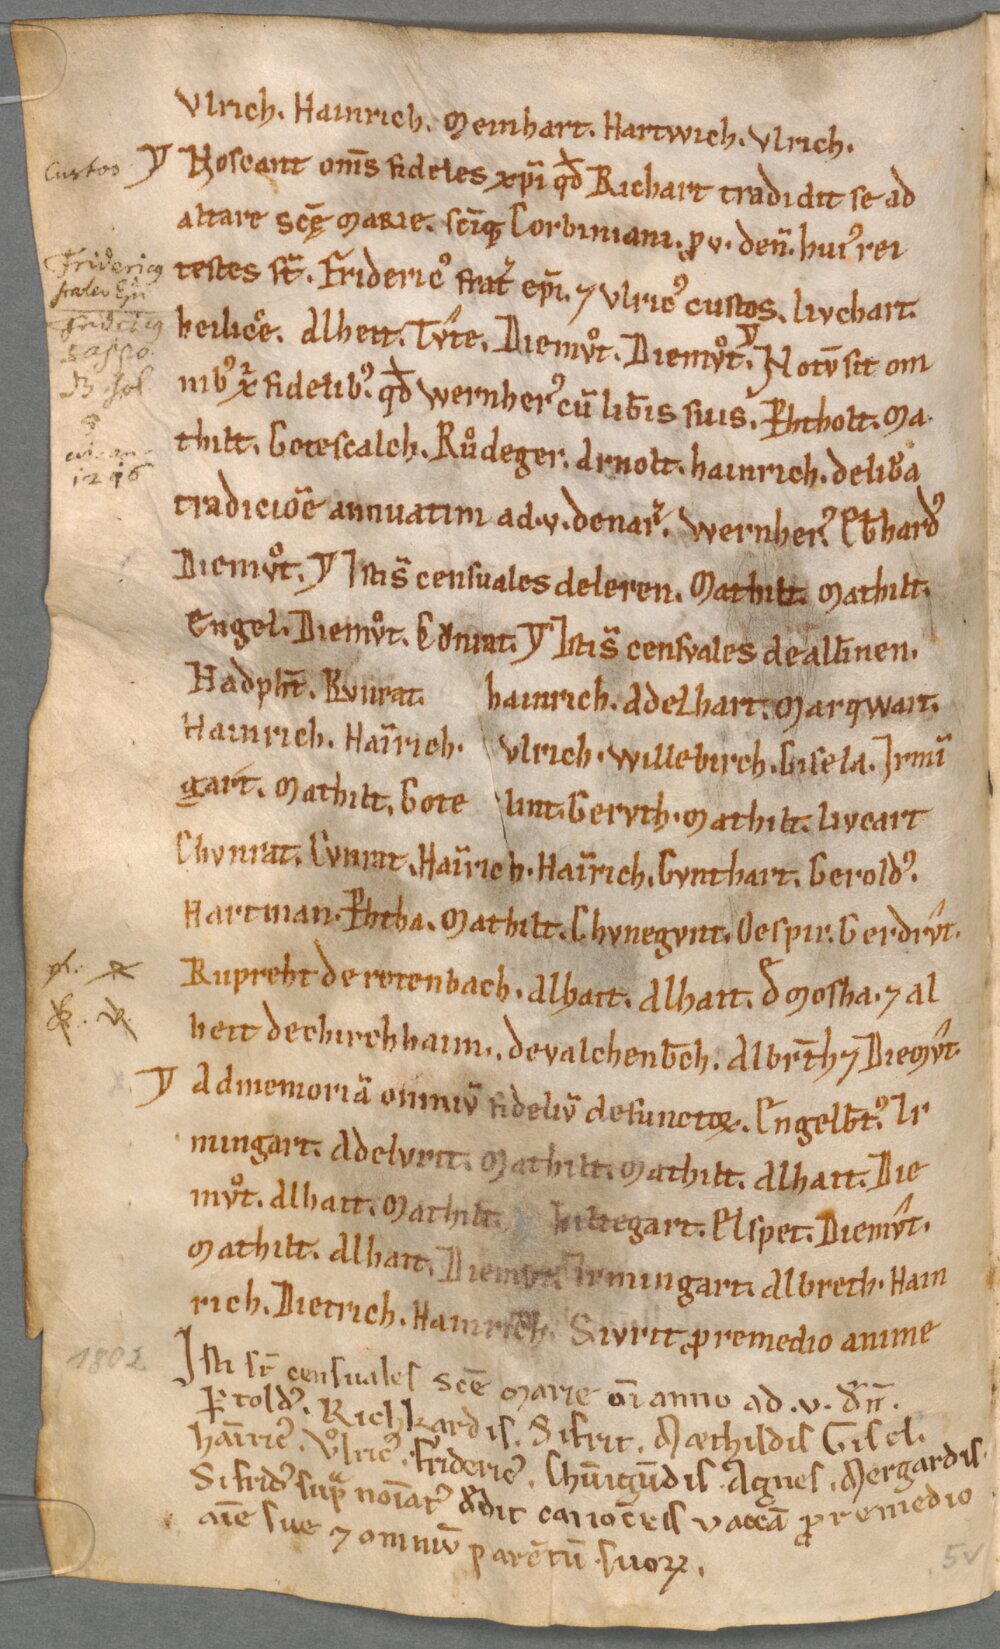 Vlrich. Hainrich. Meinhart. Hartwich. Vlrich.
Custos
Noscant om̄s fideles xp̄i qd̄ Richart tradidit se ad
altare scē MARIE. sciq; Corbiniani. p̱ v. den̄. hui᾽ rei
testes st̄. Frideric᾽ frat᷑ ep̄i. ⁊ Vlric᾽ custos. Livchart.
Frideric᾽
frater
heilic᷑e. Alheit. Tv̂te. Diemvͦt. Diemvͦt. Notv̄ sit om
nib᾽ xp̄i fidelib᾽. qd̄ Wernher᾽ cū lib̄is suis. Ꝑhtholt. Ma
thilt. Gotescalch. Růdeger. Arnolt. hainrich. delib̄a
1296
tradiciōe annuatim ad .v. denar᷑. Wernher᾽. Eb̄hard᾽
Diemvͦt. Isti s̄ censuales de leren. Mathilt. Mathilt.
Engel. Diemvͦt. Isti s̄ censvales de
Kvnrat. hainrich. Adelhart. Marqwart.
Hainrich. Haīrich. Vlrich. Willebirch. Gisela. Irmī
gart. Mathilt. Gote lint. Gervth. Mathilt. Livcart
Chvnrat. Cvnrat. Haīrich. Haīrich. Gvnthart. Gerold᾽.
Hartman. Ꝑhtha. Mathilt. Chvnegvnt. Oespir. Gerdrv̂t.
Rupreht de rotenbach. Alhait. Alhait. đ Mosha. ⁊ Al
heit de chirchhaim. de valchenb̄ch. Albr̄th ⁊ Diemv̂t.
Ad memoriā omniv̄ fideliv̄ defunctoꝝ. Engelb̄t᾽. Ir
mingart. Adelvrit. Mathilt. Mathilt. Alhait. Die
mvͦt. Alhait. Mathilt. hiltegart. Elspet. Diemv̂t.
Mathilt. Alhait. Diemvt. Irmingart. Albreth. Hain
rich. Dietrich. Hainrich. Sivrit p̱ remedio anime
1802
Isti st̄ censuales scē Marie oī anno ad .v. đn̄.
Ꝑtold᾽. Richkardis. Sifrit. Mæthildis Gisel.
hāiric᾽. Vͦlric᾽. Frideric᾽. Chūigūdis. Agnes. Mergardis.
Sifrid᾽ sup̄ noīat᾽ dedit canoīcis vaccā p̱ remedio
aīe sue ⁊ omniv̄ parētū suoꝝ.
5v